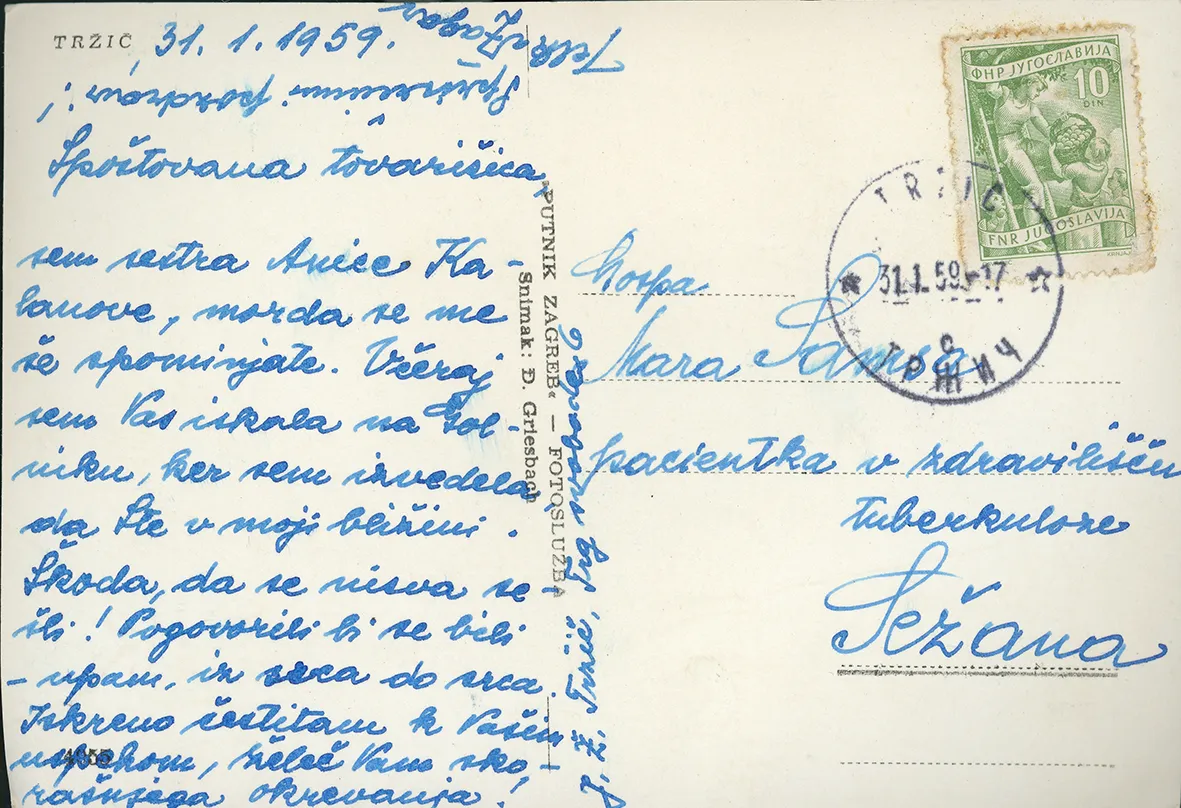 TRŽIČ, 31. 1. 1959.
Spoštovana tovarišica,
sem sestra Anice Ka-
lanove, morda se me
še spominjate. Včeraj
sem Vas iskala na Gol-
niku, ker sem izvedela
da Ste v moji bližini.
Škoda, da se nisva se-
šli! Pogovorili bi se bili
- upam, iz srca do srca.
Iskreno čestitam k Vašim
uspehom, želeč Vam sko-
rašnjega okrevanja!
S prisrčnimi pozdravi!
Jelka Žagar
J. Ž. Tržič, Trg svobode
"PUTNIK ZAGREB" — FOTOSLUŽBA
Snimak: Đ. Griesbach
ФНР ЈУГОСЛАВИЈА
10
DIN
FNR JUGOSLAVIJA
TRŽIČ
31.1.59-17
c
ТРЖИЧ
Gospa
Mara Samsa
pacientka v zdravilišču
tuberkuloze
Sežana